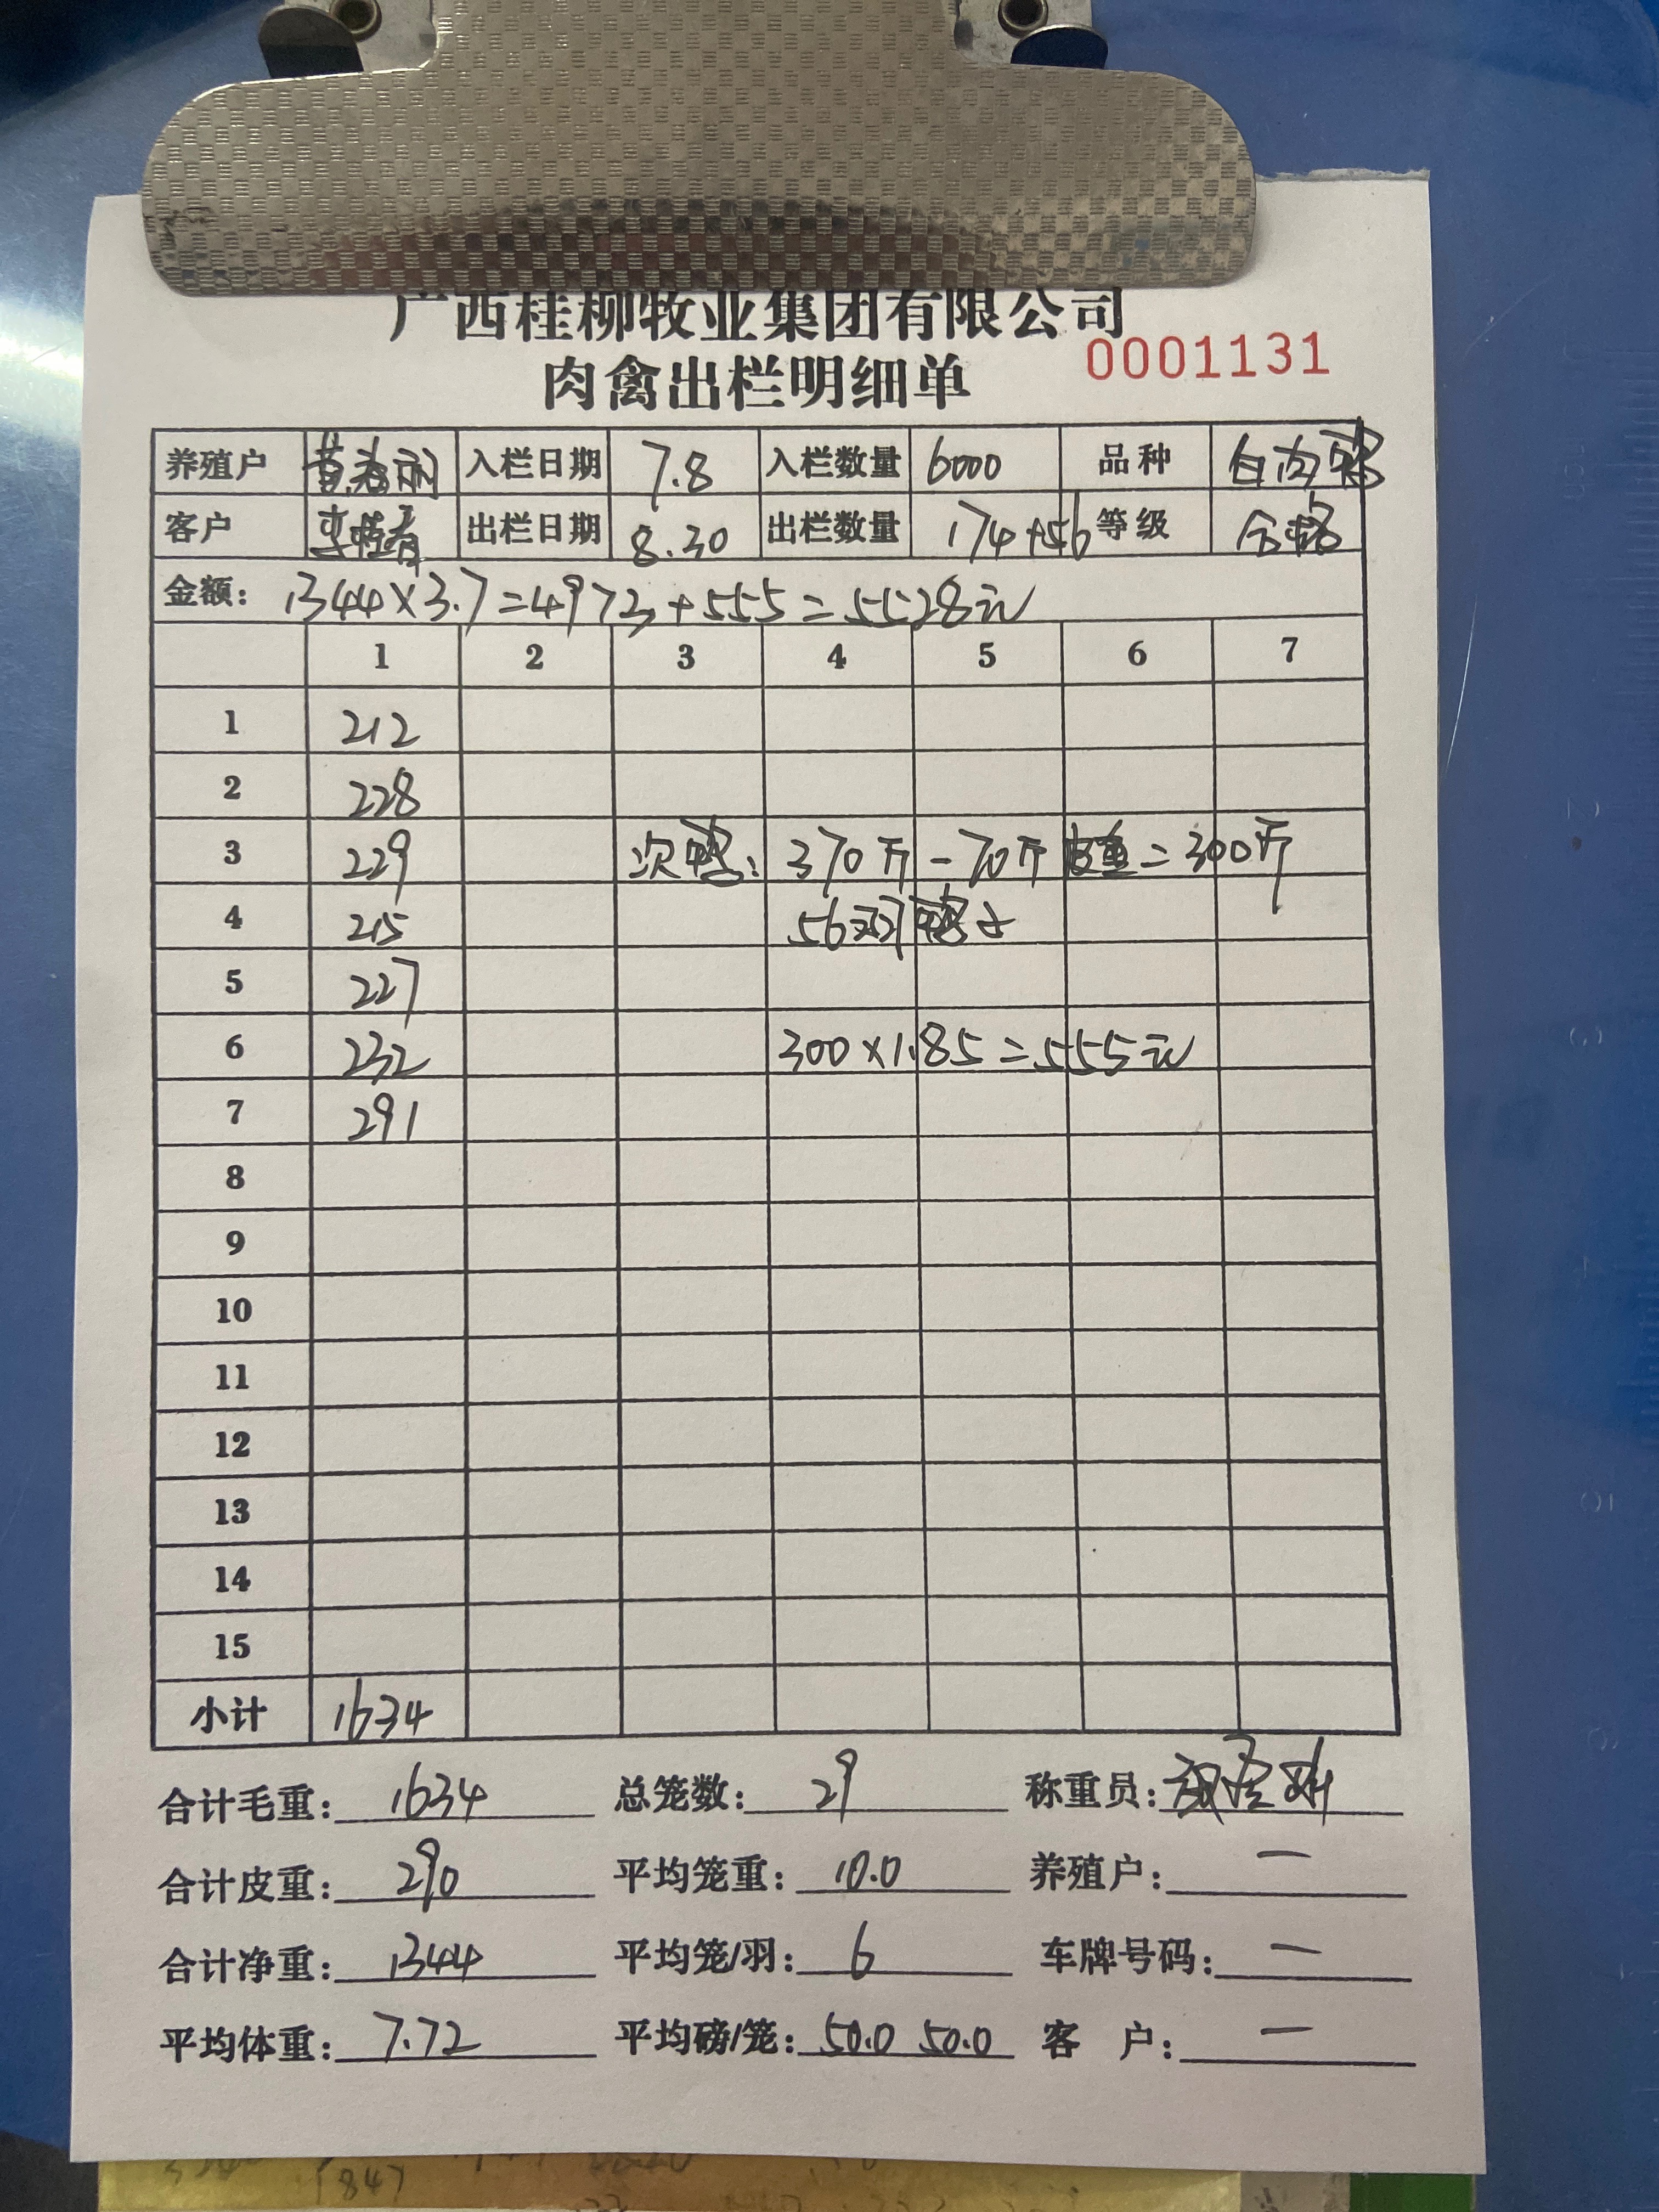 广西桂柳牧业集团有限公司
肉禽出栏明细单 0001131
养殖户 入栏日期 7.8 入栏数量 6000 品种 白肉鸭
客户 出栏日期 8.30 出栏数量 174+56 等级 合格
金额: 1344×3.7=4973+555=5528元
1 2 3 4 5 6 7
1 212
2 228
3 229 次鸭: 370斤-70斤皮重=300斤
4 215 56羽鸭子
5 227
6 232 300×1.85=555元
7 291
8
9
10
11
12
13
14
15
小计 1634
合计毛重: 1634 总笼数: 29 称重员:
合计皮重: 290 平均笼重: 10.0 养殖户: 一
合计净重: 1344 平均笼/羽: 6 车牌号码: 一
平均体重: 7.72 平均磅/笼: 50.0 50.0 客 户: 一
1847